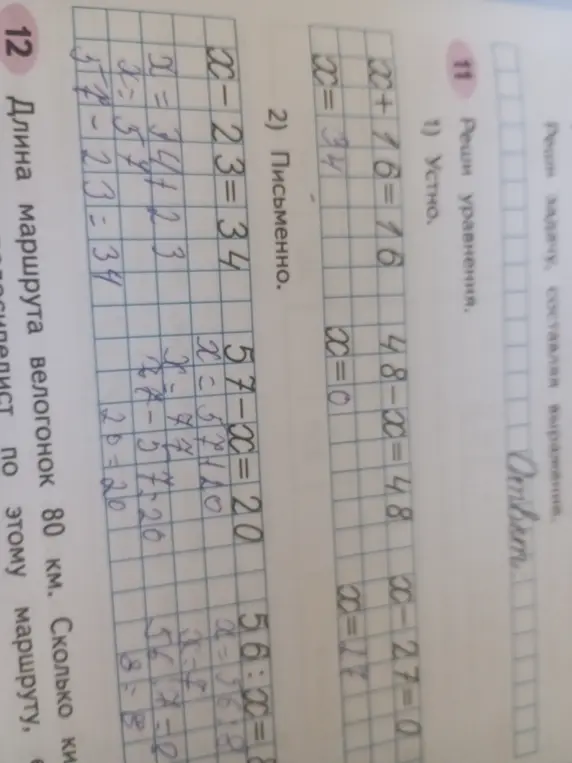 Реши задачу, составляя выражение.
Ответ.
11 Реши уравнения.
1) Устно.
x + 16 = 16 48 - x = 48 x - 27 = 0
x = 34 x = 0 x = 27
2) Письменно.
x - 23 = 34 57 - x = 20 56 : x =
x = 34 + 23 x = 57 + 20 x = 56 : 8
x = 57 x = 77
57 - 23 = 34 77 - 57 = 20 56 : 7 = 8
20 = 20 8 = 8
12 Длина маршрута велогонок 80 км. Сколько
по этому маршруту,